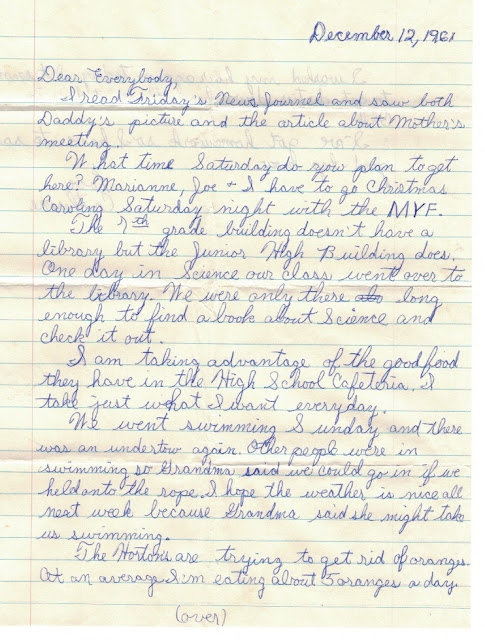 December 12, 1961
Dear Everybody,
I read Friday's News Journel and saw both
Daddy's picture and the article about Mother's
meeting.
What time Saturday do you plan to get
here? Marianne, Joe + I have to go Christmas
Caroling Saturday night with the MYF.
The 7th grade building doesn't have a
library but the Junior High Building does.
One day in Science our class went over to
the library. We were only there long
enough to find a book about Science and
check it out.
I am taking advantage of the good food
they have in the High School Cafeteria. I
take just what I want everyday.
We went swimming Sunday and there
was an undertow again. Other people were in
swimming so Grandma said we could go in if we
held onto the rope. I hope the weather is nice all
next week because Grandma said she might take
us swimming.
The Hortons are trying to get rid of oranges.
At an average I'm eating about 5 oranges a day.
(over)